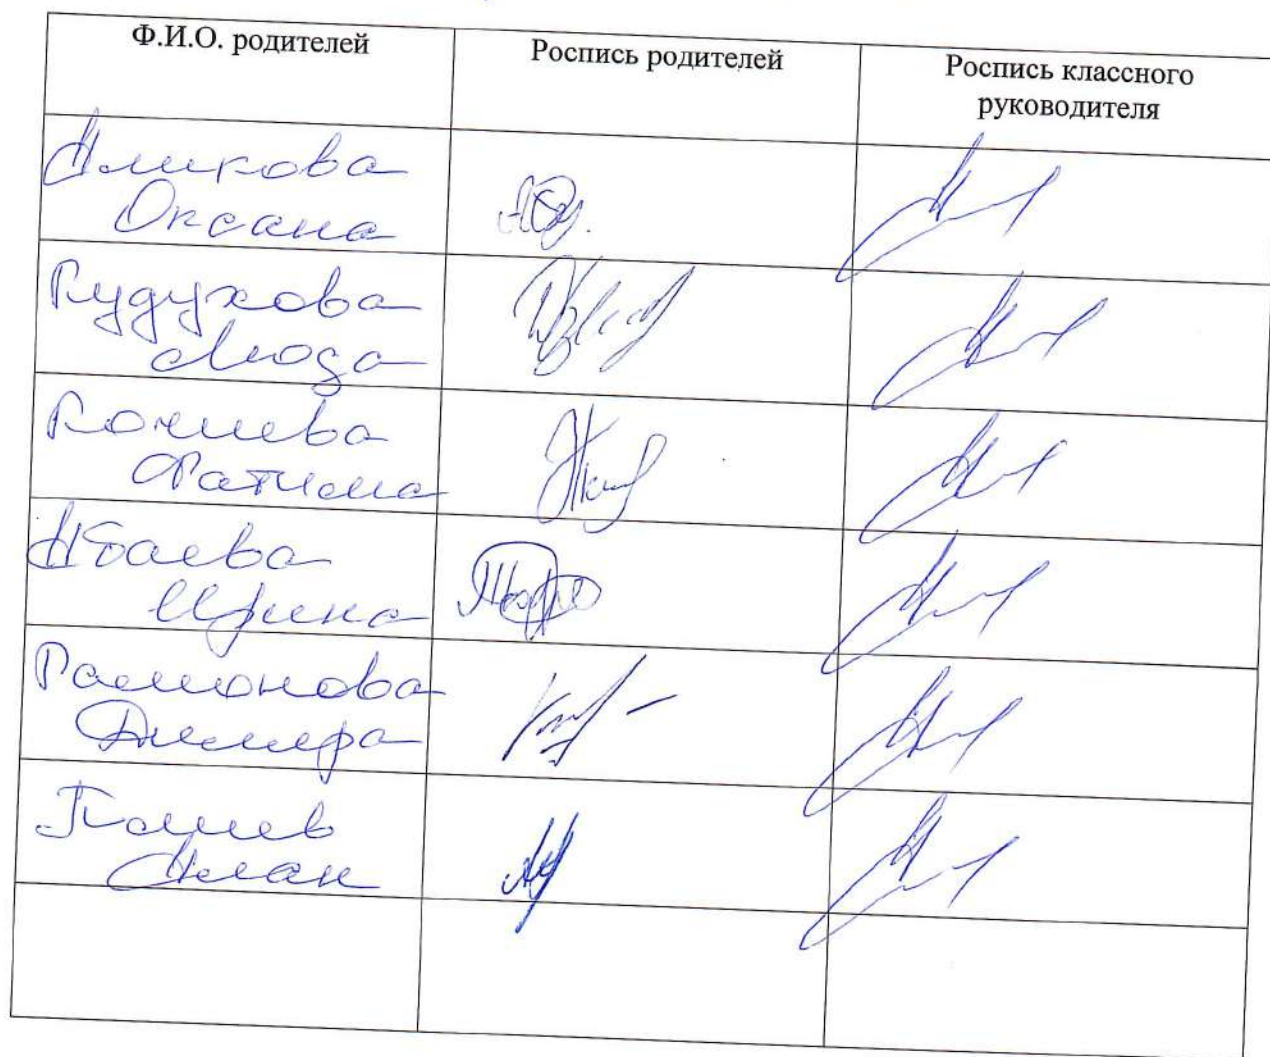 Ф.И.О. родителей
Роспись родителей
Роспись классного
руководителя
Аликова
Оксана
Гудухова
Люда
Кочиева
Фатима
Абаева
Ирина
Рамонова
Диляра
Плиев
Алан